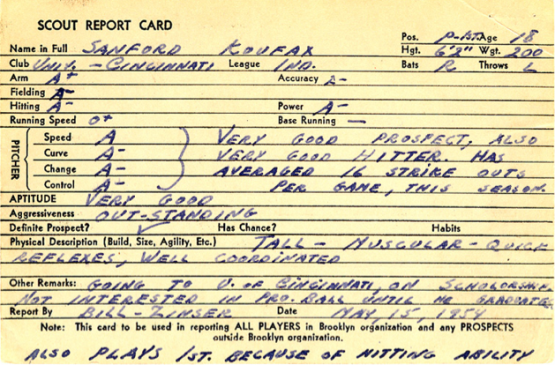 SCOUT REPORT CARD
Pos. P- Age 18
Name in Full SANFORD KOUFAX Hgt. 6'2" Wgt. 200
Club UNIV. - CINCINNATI League IND. Bats R Throws L
Arm A+ Accuracy A-
Fielding A-
Hitting A- Power A-
Running Speed 0+ Base Running —
PITCHER
Speed A VERY GOOD PROSPECT, ALSO
Curve A- VERY GOOD HITTER. HAS
Change A- AVERAGED 16 STRIKE OUTS
Control A- PER GAME, THIS SEASON.
APTITUDE VERY GOOD
Aggressiveness OUT-STANDING
Definite Prospect? ✓ Has Chance? Habits
Physical Description (Build, Size, Agility, Etc.) TALL - MUSCULAR - QUICK
REFLEXES, WELL COORDINATED
Other Remarks: GOING TO U. OF CINCINNATI, ON SCHOLORSHIP.
NOT INTERESTED IN PRO. BALL UNTIL HE GRADUATES.
Report By BILL-ZINSER Date MAY, 15, 1954
Note: This card to be used in reporting ALL PLAYERS in Brooklyn organization and any PROSPECTS
outside Brooklyn organization.
ALSO PLAYS 1ST. BECAUSE OF HITTING ABILITY